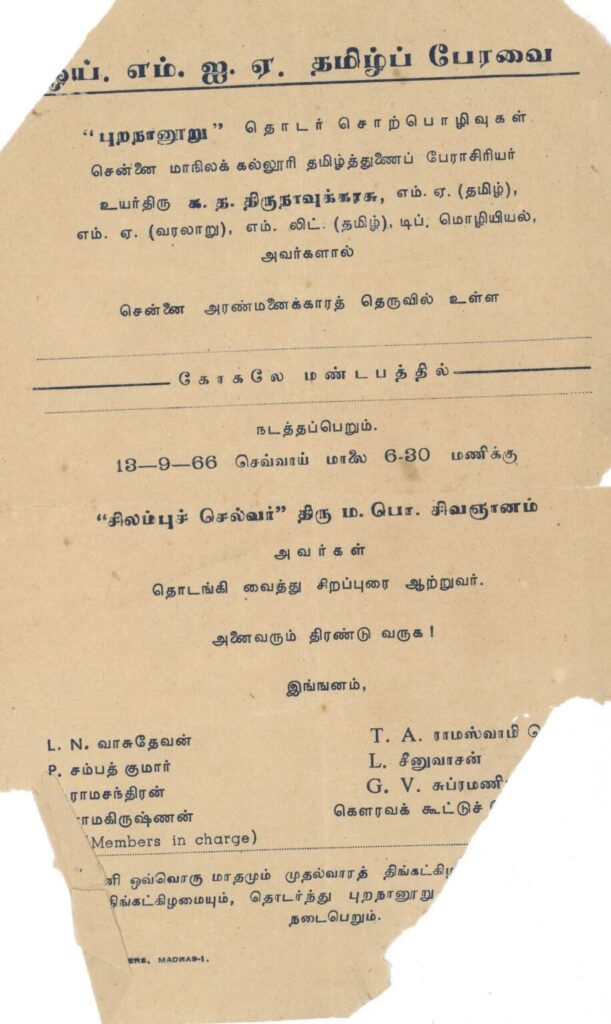 ஒய். எம். ஐ. ஏ. தமிழ்ப் பேரவை
"புறநானூறு" தொடர் சொற்பொழிவுகள்
சென்னை மாநிலக் கல்லூரி தமிழ்த்துணைப் பேராசிரியர்
உயர்திரு க. த. திருநாவுக்கரசு, எம். ஏ. (தமிழ்),
எம். ஏ. (வரலாறு), எம். லிட். (தமிழ்), டிப். மொழியியல்,
அவர்களால்
சென்னை அரண்மனைக்காரத் தெருவில் உள்ள
கோகலே மண்டபத்தில்
நடத்தப்பெறும்.
13—9—66 செவ்வாய் மாலை 6-30 மணிக்கு
"சிலம்புச் செல்வர்" திரு ம. பொ. சிவஞானம்
அவர்கள்
தொடங்கி வைத்து சிறப்புரை ஆற்றுவர்.
அனைவரும் திரண்டு வருக !
இங்ஙனம்,
L. N. வாசுதேவன்
P. சம்பத் குமார்
ராமசந்திரன்
ாமகிருஷ்ணன்
(Members in charge)
T. A. ராமஸ்வாமி
L. சீனுவாசன்
G. V. சுப்ரமணி
கௌரவக் கூட்டுச்
னி ஒவ்வொரு மாதமும் முதல்வாரத் திங்கட்கிழ
திங்கட்கிழமையும், தொடர்ந்து புறநானூறு
நடைபெறும்.
ERS, MADRAS-1.